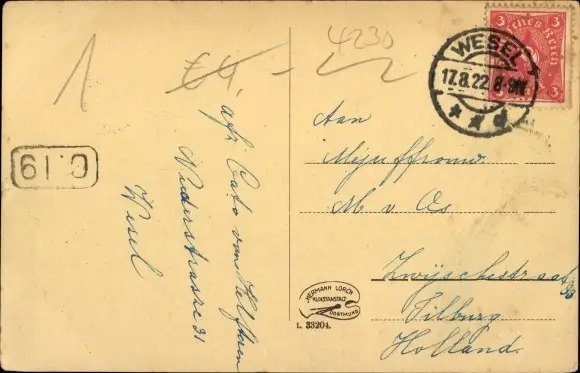 1
4230
3
3
Deutsches Reich
3
3
WESEL
17.8.22. 8-9N.
* * d
C. 19
afz. Cato von
Niederstrasse 31
Wesel
Aan
Mejuffrouw
M v Os
Tilburg
Holland.
HERMANN LORCH
KUNSTANSTALT
DORTMUND
L. 33204.